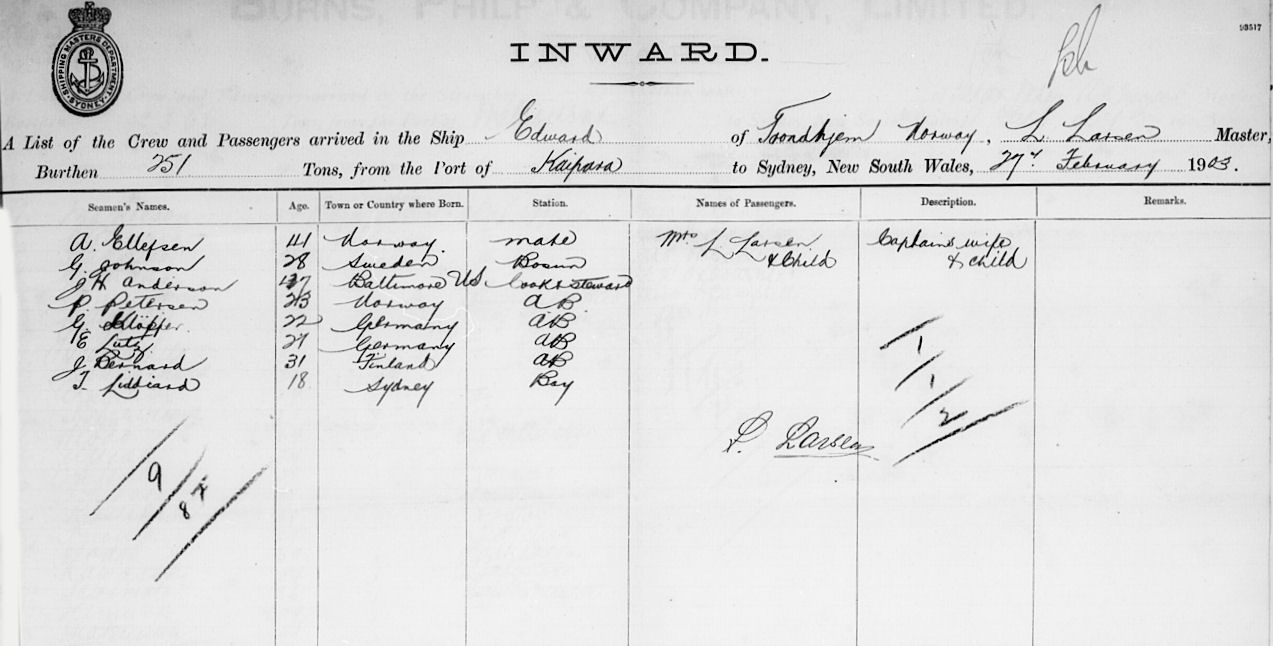 BURNS, PHILP & COMPANY, LIMITED.
SHIPPING MASTERS DEPARTMENT SYDNEY
93517
INWARD.
A List of the Crew and Passengers arrived in the Ship Edward of Trondhjem Norway, L Larsen Master,
Burthen 251 Tons, from the Port of Kaipara to Sydney, New South Wales, 27th February 1903.
Seamen's Names. Age. Town or Country where Born. Station. Names of Passengers. Description. Remarks.
A. Ellefsen 41 Norway. mate Mrs L Larsen Captains wife
& Child & child
G. Johnson 28 Sweden Bosun
J H Anderson Baltimore US Cook & steward
P Petersen 23 Norway AB
G. Klöpfer 22 Germany AB
E Lutz 27 Germany AB
J Bernard 31 Finland AB
T Liddiard 18 Sydney Boy
1
1
2
L. Larsen
9
8